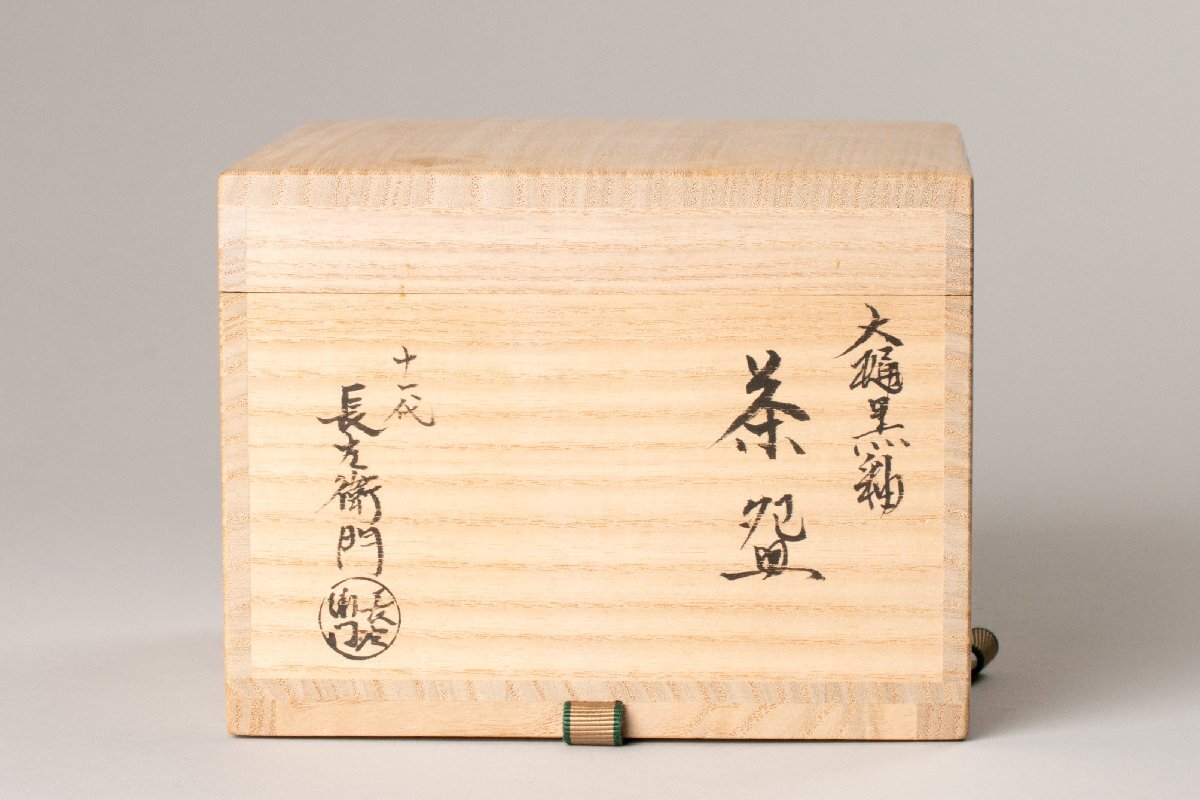 大樋黒釉
茶盌
十一代
長左衛門
長左衛門